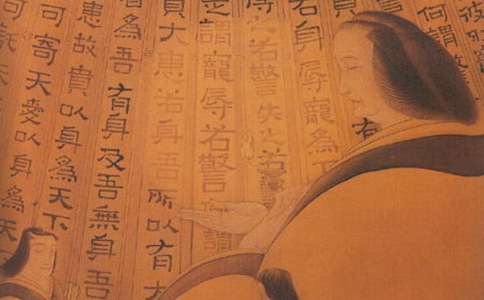 何謂驚
若身辱寵為下
辱若驚失之若
之謂寵辱若驚何謂
貴大患若身吾所以有大
為吾有身及吾無身吾
患故貴以身為天下
可寄天愛以身為天下
可